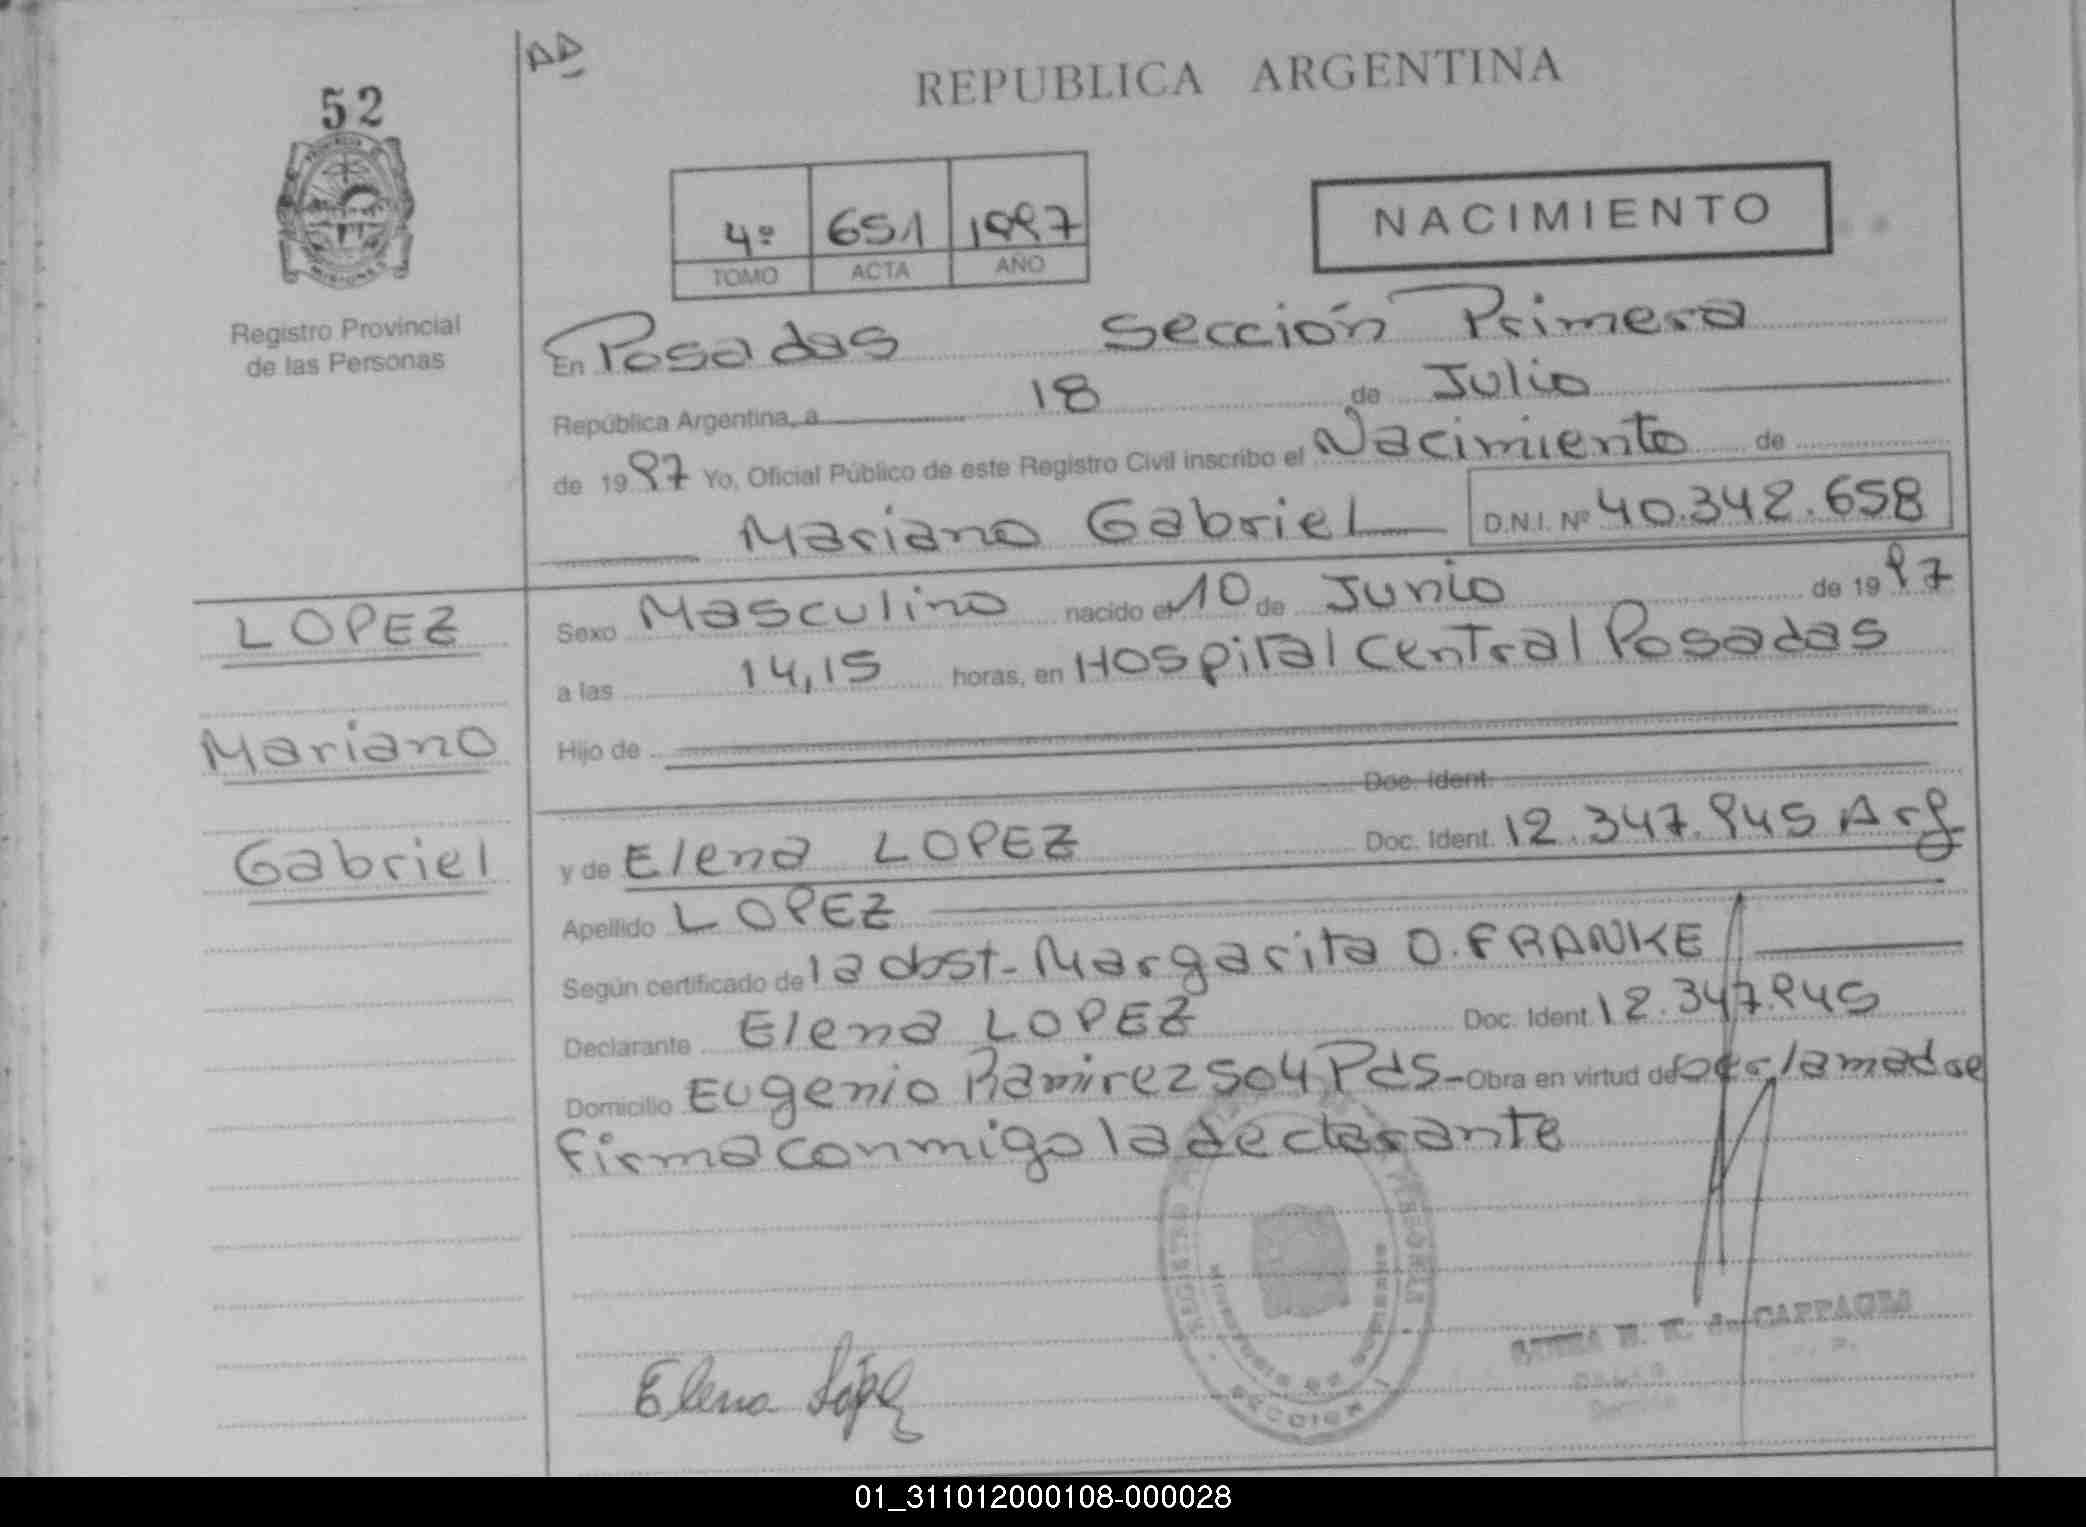 52
AD
REPUBLICA ARGENTINA
4º 651 1997
TOMO ACTA AÑO
NACIMIENTO
Registro Provincial
de las Personas
En Posadas Sección Primera
República Argentina, a 18 de Julio
de 1997 Yo, Oficial Público de este Registro Civil inscribo el Nacimiento de
Mariano Gabriel D.N.I. Nº 40.342.658
LOPEZ
Mariano
Gabriel
Sexo Masculino nacido el 10 de Junio de 1997
a las 14,15 horas, en Hospital Central Posadas
Hijo de
Doc. Ident.
y de Elena LOPEZ Doc. Ident. 12.347.945 Arg
Apellido LOPEZ
Según certificado de la obst- Margarita O. FRANKE
Declarante Elena LOPEZ Doc. Ident 12.347.945
Domicilio Eugenio Ramirez 504 Pds- Obra en virtud de ser la madre
firma conmigo la declarante
SECCION 1
Elena López
de CAPPAGLI
01_311012000108-000028